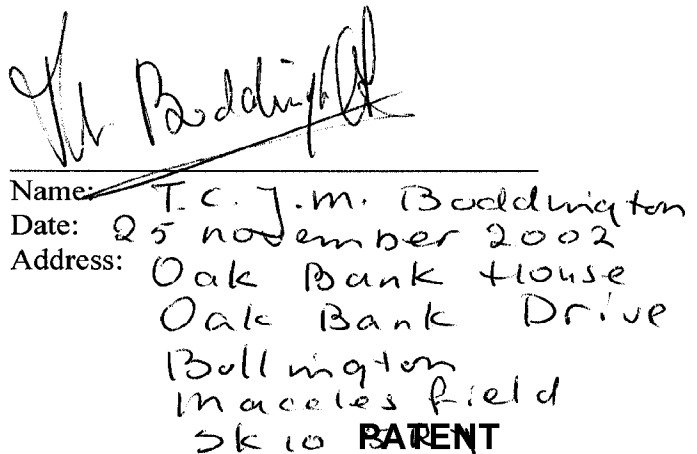 Name: T.C.J.M. Boddington
Date: 25 November 2002
Address: Oak Bank House
Oak Bank Drive
Bollington
Macclesfield
SK10 PATENT